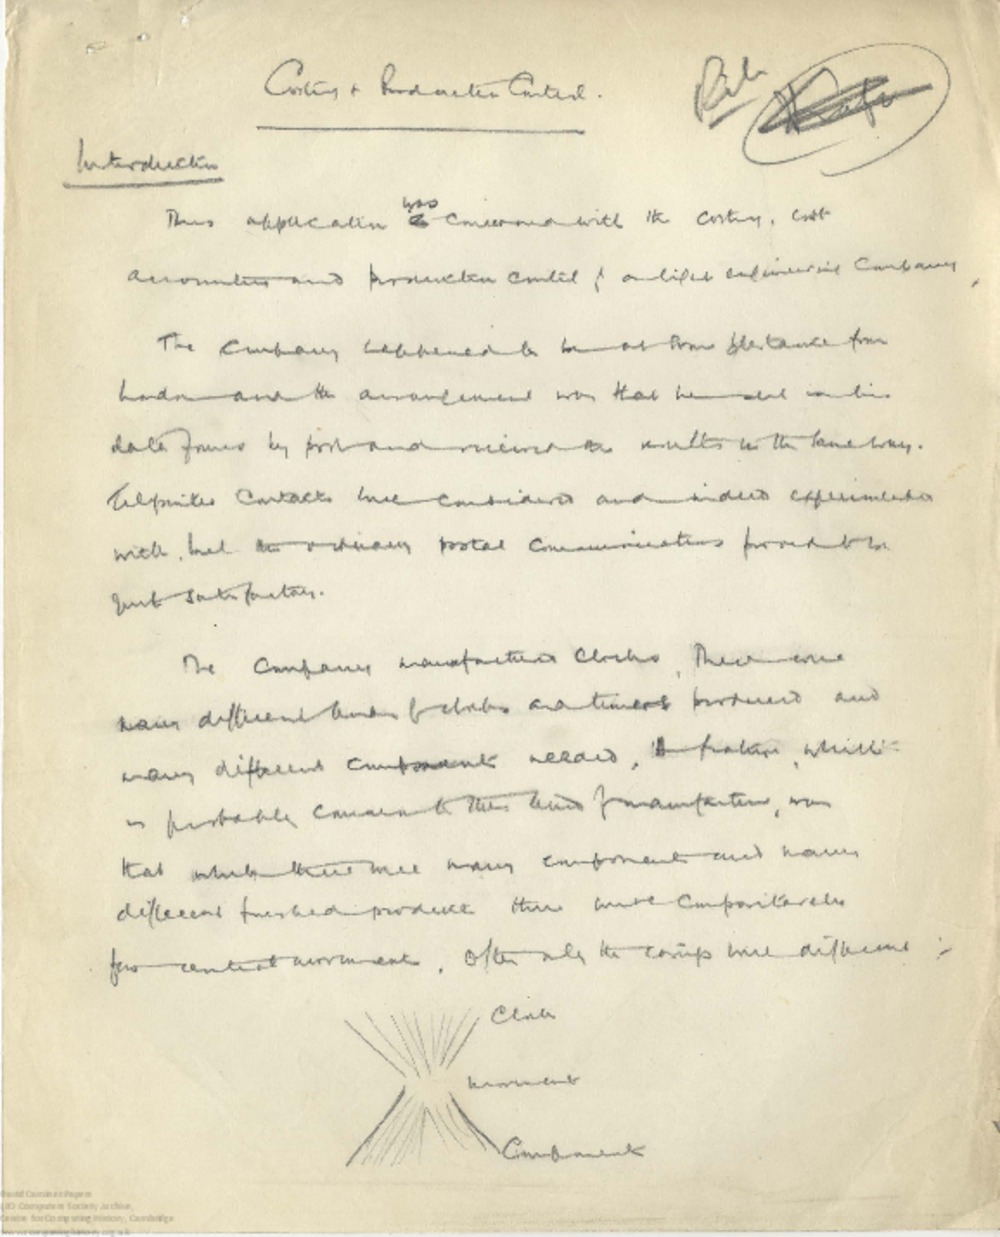 Costing & Production Control.
Introduction
This application was concerned with the costing, cost
accounting and production control of a light engineering Company.
The Company happened to be at some distance from
London and the arrangement was that he sent in his
data forms by post and received the results in the same way.
Teleprinter Contacts were considered and indeed experimented
with, but the ordinary postal communications proved to be
quite satisfactory.
The Company manufactures clocks. There were
many different kinds of clocks and timers produced and
many different components needed. A feature, which
is probably common to this kind of manufacture, was
that while there were many components and many
different finished products there were comparatively
few central movements. Often only the casings were different :-
Clocks
movements
Components
David Caminer Papers
LEO Computers Society Archive,
Centre for Computing History, Cambridge